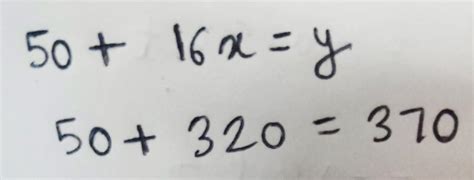 50 + 16x = y
50 + 320 = 370